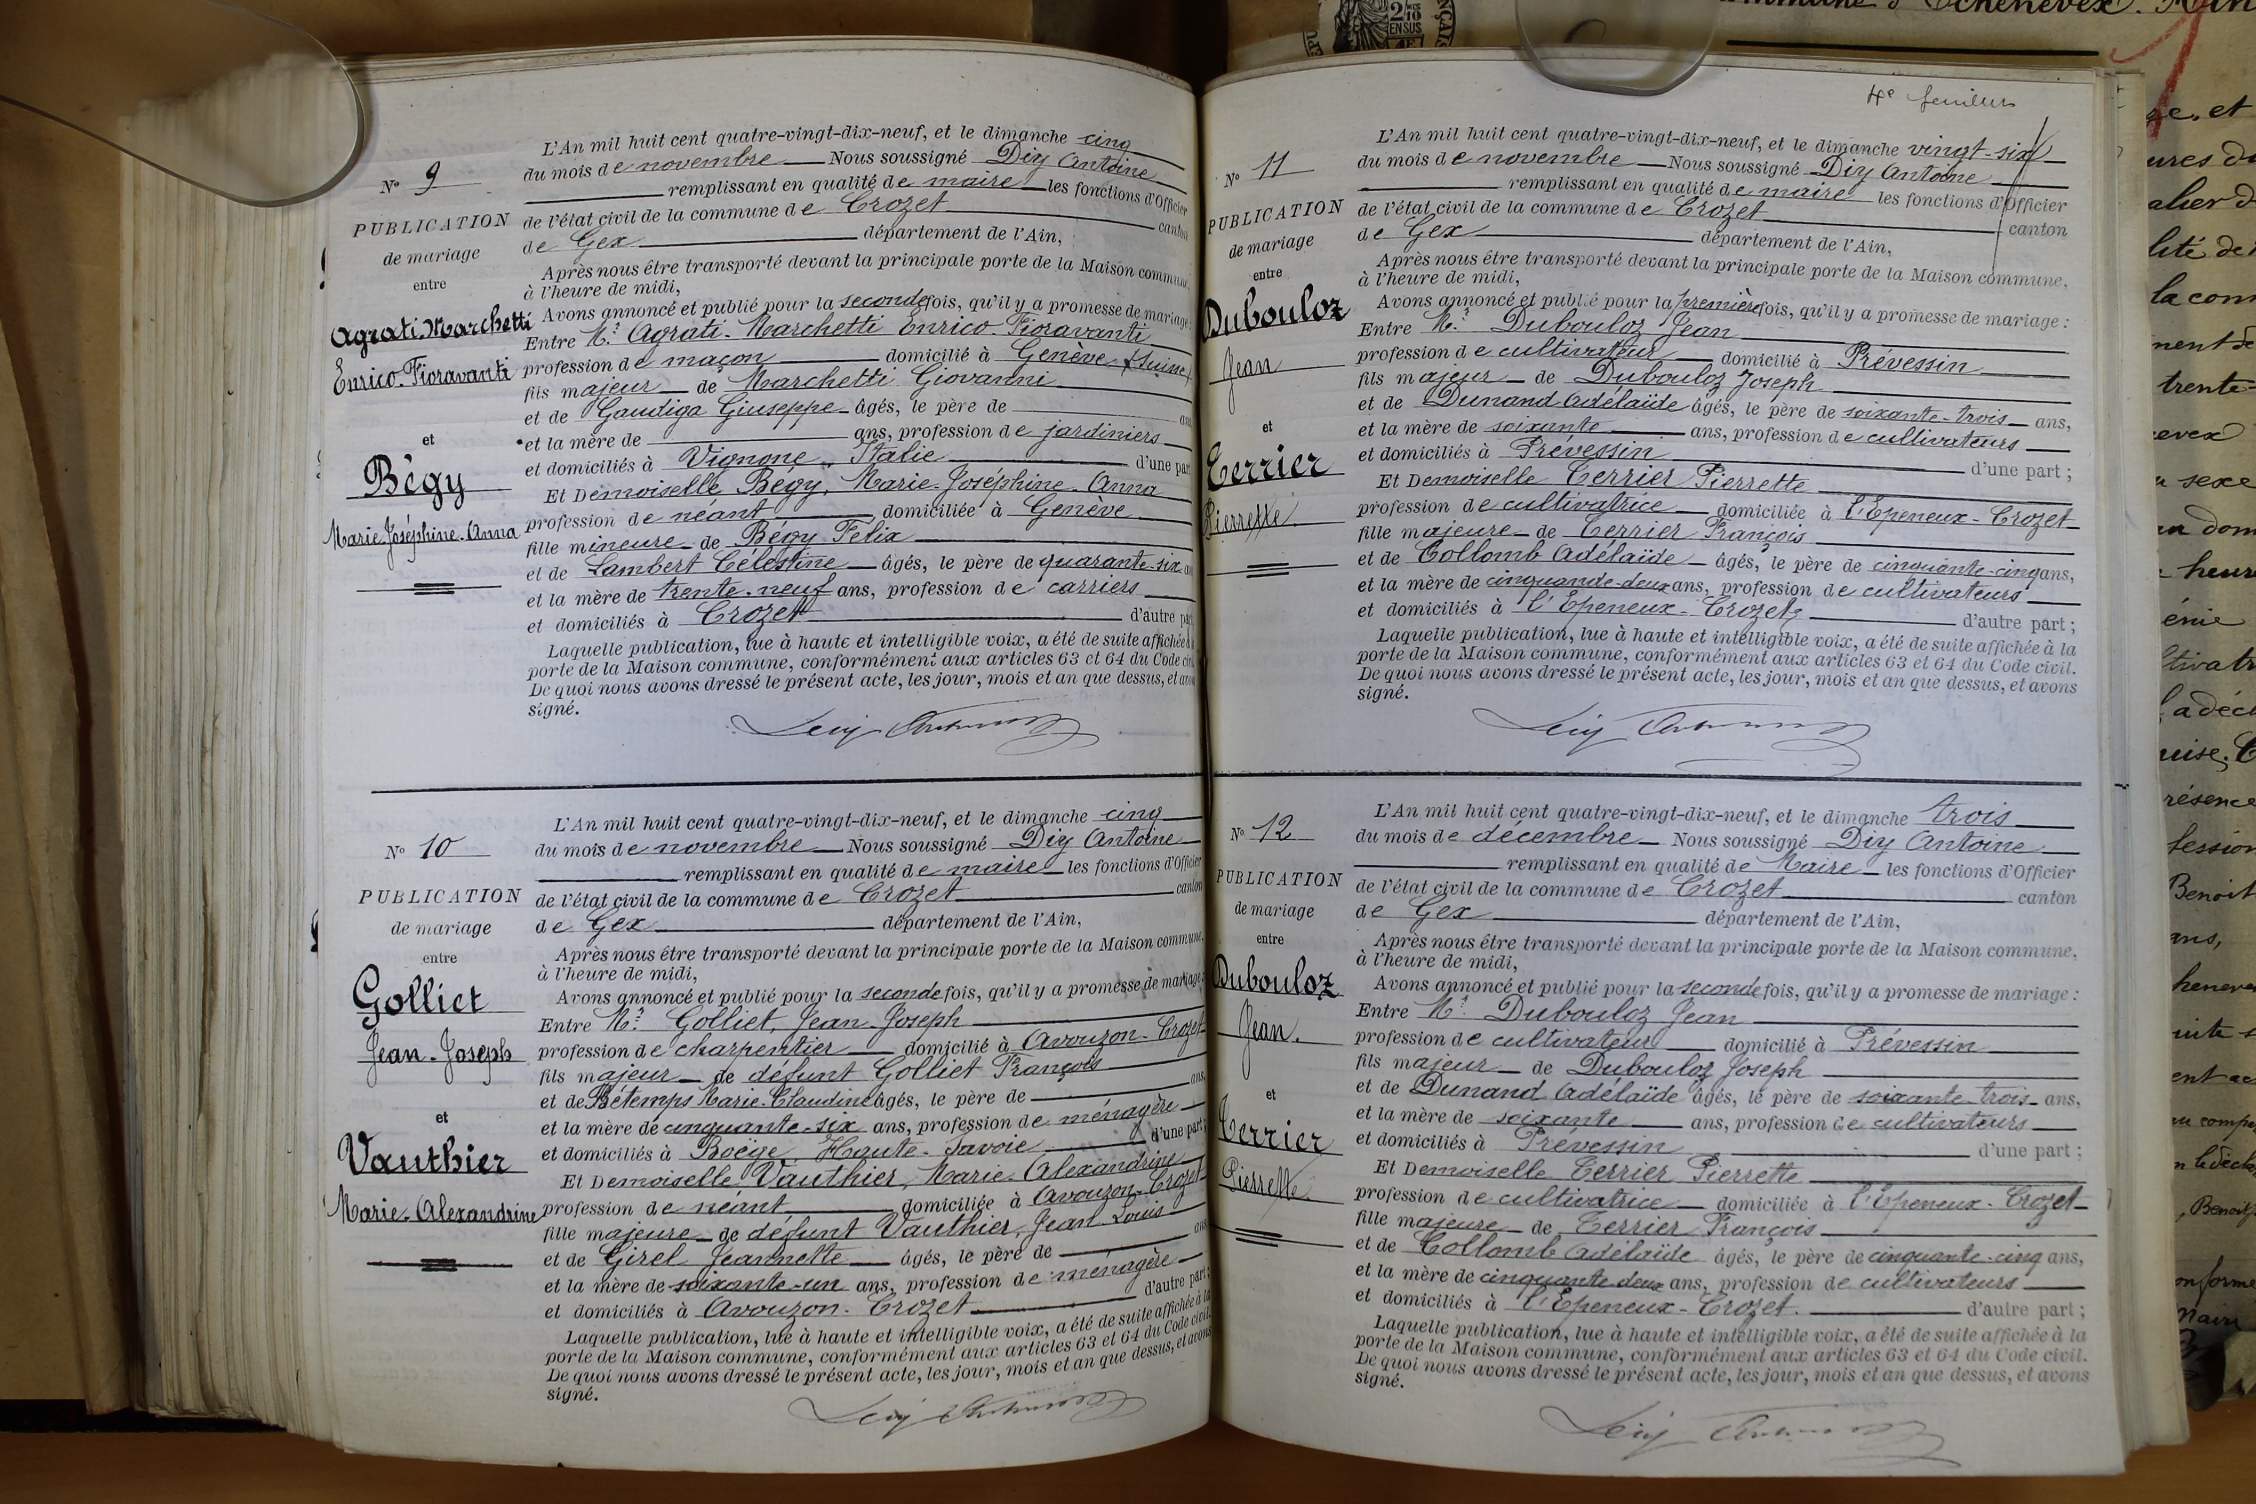 N° 9
PUBLICATION
de mariage
entre
Agrati-Marchetti
Enrico-Fioravanti
et
Bégy
Marie-Joséphine-Anna
L'An mil huit cent quatre-vingt-dix-neuf, et le dimanche cinq
du mois de novembre Nous soussigné Diy Antoine
remplissant en qualité de maire les fonctions d'Officier
de l'état civil de la commune de Crozet canton
de Gex département de l'Ain,
Après nous être transporté devant la principale porte de la Maison commune,
à l'heure de midi,
Avons annoncé et publié pour la seconde fois, qu'il y a promesse de mariage:
Entre Mr. Agrati-Marchetti Enrico-Fioravanti
profession de maçon domicilié à Genève (Suisse)
fils majeur de Marchetti Giovanni
et de Gaudiga Giuseppe âgés, le père de ans
et la mère de ans, profession de jardiniers
et domiciliés à Vignone, Italie d'une part
Et Demoiselle Bégy, Marie-Joséphine-Anna
profession de néant domiciliée à Genève
fille mineure de Bégy Félix
et de Lambert Célestine âgés, le père de quarante-six ans
et la mère de trente-neuf ans, profession de carriers
et domiciliés à Crozet d'autre part
Laquelle publication, lue à haute et intelligible voix, a été de suite affichée à la
porte de la Maison commune, conformément aux articles 63 et 64 du Code civil.
De quoi nous avons dressé le présent acte, les jour, mois et an que dessus, et avons
signé.
Diy Antoine
N° 10
PUBLICATION
de mariage
entre
Golliet
Jean-Joseph
et
Vauthier
Marie-Alexandrine
L'An mil huit cent quatre-vingt-dix-neuf, et le dimanche cinq
du mois de novembre Nous soussigné Diy Antoine
remplissant en qualité de maire les fonctions d'Officier
de l'état civil de la commune de Crozet canton
de Gex département de l'Ain,
Après nous être transporté devant la principale porte de la Maison commune,
à l'heure de midi,
Avons annoncé et publié pour la seconde fois, qu'il y a promesse de mariage:
Entre Mr. Golliet, Jean-Joseph
profession de charpentier domicilié à Avouzon-Crozet
fils majeur de défunt Golliet François
et de Bétemps Marie-Claudine âgés, le père de ans,
et la mère de cinquante-six ans, profession de ménagère
et domiciliés à Boëge, Haute-Savoie d'une part;
Et Demoiselle Vauthier, Marie-Alexandrine
profession de néant domiciliée à Avouzon-Crozet
fille majeure de défunt Vauthier, Jean-Louis
et de Girel Jeannette âgés, le père de ans
et la mère de soixante-un ans, profession de ménagère
et domiciliés à Avouzon-Crozet d'autre part;
Laquelle publication, lue à haute et intelligible voix, a été de suite affichée à la
porte de la Maison commune, conformément aux articles 63 et 64 du Code civil.
De quoi nous avons dressé le présent acte, les jour, mois et an que dessus, et avons
signé.
Diy Antoine
4e
N° 11
PUBLICATION
de mariage
entre
Dubouloz
Jean
et
Terrier
Pierrette
L'An mil huit cent quatre-vingt-dix-neuf, et le dimanche vingt-six
du mois de novembre Nous soussigné Diy Antoine
remplissant en qualité de maire les fonctions d'Officier
de l'état civil de la commune de Crozet canton
de Gex département de l'Ain,
Après nous être transporté devant la principale porte de la Maison commune,
à l'heure de midi,
Avons annoncé et publié pour la première fois, qu'il y a promesse de mariage :
Entre Mr. Dubouloz Jean
profession de cultivateur domicilié à Prévessin
fils majeur de Dubouloz Joseph
et de Dunand Adélaïde âgés, le père de soixante-trois ans,
et la mère de soixante ans, profession de cultivateurs
et domiciliés à Prévessin d'une part ;
Et Demoiselle Terrier Pierrette
profession de cultivatrice domiciliée à l'Epeneux-Crozet
fille majeure de Terrier François
et de Collomb Adélaïde âgés, le père de cinquante-cinq ans,
et la mère de cinquande-deux ans, profession de cultivateurs
et domiciliés à l'Epeneux-Crozet, d'autre part ;
Laquelle publication, lue à haute et intelligible voix, a été de suite affichée à la
porte de la Maison commune, conformément aux articles 63 et 64 du Code civil.
De quoi nous avons dressé le présent acte, les jour, mois et an que dessus, et avons
signé.
Diy Antoine
N° 12
PUBLICATION
de mariage
entre
Dubouloz
Jean.
et
Terrier
Pierrette
L'An mil huit cent quatre-vingt-dix-neuf, et le dimanche trois
du mois de décembre Nous soussigné Diy Antoine
remplissant en qualité de Maire les fonctions d'Officier
de l'état civil de la commune de Crozet canton
de Gex département de l'Ain,
Après nous être transporté devant la principale porte de la Maison commune,
à l'heure de midi,
Avons annoncé et publié pour la seconde fois, qu'il y a promesse de mariage :
Entre Mr. Dubouloz Jean
profession de cultivateur domicilié à Prévessin
fils majeur de Dubouloz Joseph
et de Dunand Adélaïde âgés, le père de soixante-trois ans,
et la mère de soixante ans, profession de cultivateurs
et domiciliés à Prévessin d'une part ;
Et Demoiselle Terrier Pierrette
profession de cultivatrice domiciliée à l'Epeneux-Crozet
fille majeure de Terrier François
et de Collomb Adélaïde âgés, le père de cinquante-cinq ans,
et la mère de cinquante-deux ans, profession de cultivateurs
et domiciliés à l'Epeneux-Crozet. d'autre part ;
Laquelle publication, lue à haute et intelligible voix, a été de suite affichée à la
porte de la Maison commune, conformément aux articles 63 et 64 du Code civil.
De quoi nous avons dressé le présent acte, les jour, mois et an que dessus, et avons
signé.
Diy Antoine